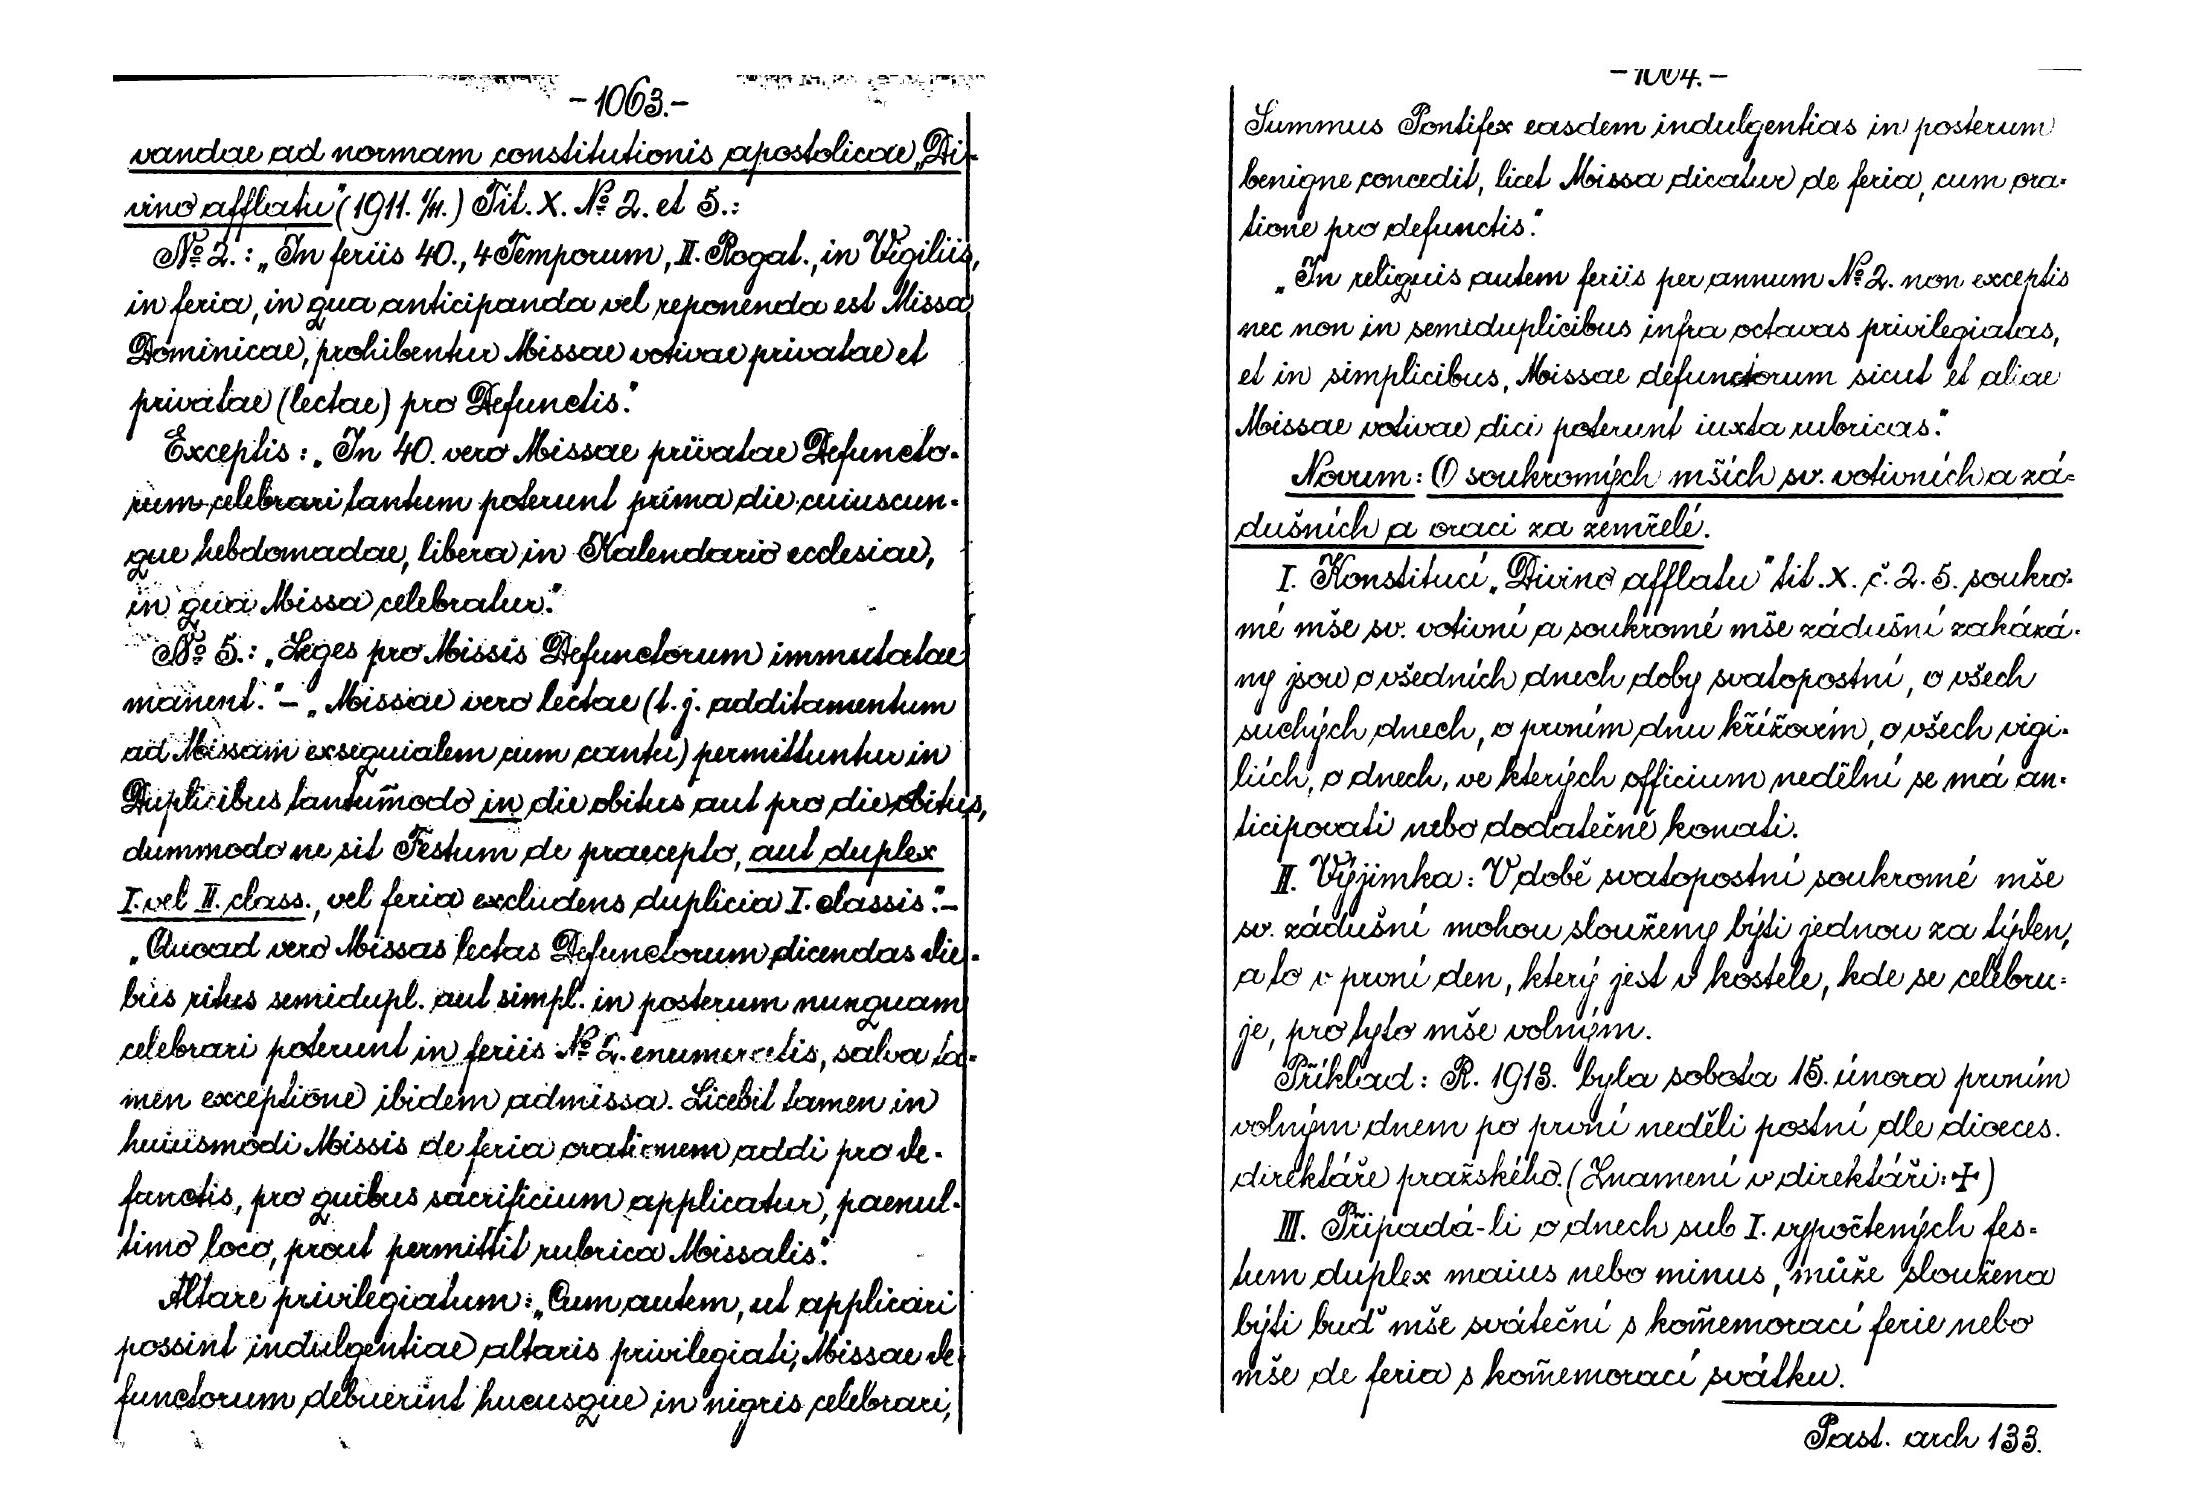 -1063.-
vandae ad normam constitutionis apostolicae „Di-
vino afflatu" (1911. 1/XI.) Tit. X. № 2. et 5.:
№ 2.: „In feriis 40., 4 Temporum, II. Rogat., in Vigiliis,
in feria, in qua anticipanda vel reponenda est Missa
Dominicae, prohibentur Missae votivae privatae et
privatae (lectae) pro Defunctis."
Exceptis: „In 40. vero Missae privatae Defuncto-
rum celebrari tantum poterunt prima die cuiuscun-
que hebdomadae, libera in Kalendario ecclesiae,
in qua Missa celebratur."
№ 5.: „Leges pro Missis Defunctorum immutatae
manent." – „Missae vero lectae (t. j. additamentum
ad Missam exsequialem cum cantu) permittuntur in
Duplicibus tantum̄odo in die obitus aut pro die obitus,
dummodo ne sit Festum de praecepto, aut duplex
I. vel II. class., vel feria excludens duplicia I. classis." –
„Quoad vero Missas lectas Defunctorum dicendas die-
bus ritus semidupl. aut simpl. in posterum nunquam
celebrari poterunt in feriis № 2. enumeratis, salva ta-
men exceptione ibidem admissa. Licebit tamen in
huiusmodi Missis de feria orationem addi pro de-
functis, pro quibus sacrificium applicatur, paenul-
timo loco, prout permittit rubrica Missalis."
Altare privilegiatum: „Cum autem, ut applicari
possint indulgentiae altaris privilegiati, Missae de
functorum debuerint hucusque in nigris celebrari,
-1064.-
Summus Pontifex easdem indulgentias in posterum
benigne concedit, licet Missa dicatur de feria, cum ora-
tione pro defunctis."
„In reliquis autem feriis per annum № 2. non exceptis
nec non in semiduplicibus infra octavas privilegiatas,
et in simplicibus, Missae defunctorum sicut et aliae
Missae votivae dici poterunt iuxta rubricas."
Novum: O soukromých mších sv. votivních a zá-
dušních a oraci za zemřelé.
I. Konstitucí „Divino afflatu" tit. X. č. 2. 5. soukro-
mé mše sv. votivní a soukromé mše zádušní zakázá-
ny jsou o všedních dnech doby svatopostní, o všech
suchých dnech, o prvním dnu křížovém, o všech vigi-
liích, o dnech, ve kterých officium nedělní se má an-
ticipovati nebo dodatečně konati.
II. Výjimka: V době svatopostní soukromé mše
sv. zádušní mohou slouženy býti jednou za týden,
a to v první den, který jest v kostele, kde se celebru-
je, pro tyto mše volným.
Příklad: R. 1913. byla sobota 15. února prvním
volným dnem po první neděli postní dle dioeces.
direktáře pražského. (Znamení v direktáři: ✠)
III. Připadá-li o dnech sub I. vypočtených fes-
tum duplex maius nebo minus, může sloužena
býti buď mše sváteční s kom̄emorací ferie nebo
mše de feria s kom̄emorací svátku.
Past. arch 133.